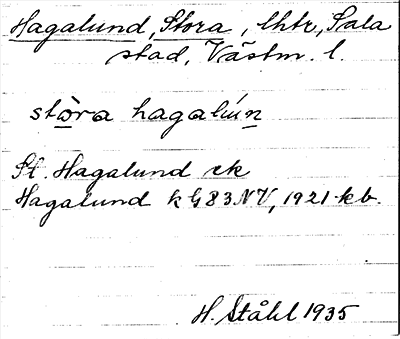 Hagalund, Stora, lhtr, Sala
stad, Västm. l.
stòra hagalún
St. Hagalund ek
Hagalund k G83NV, 1921 kb.
H. Ståhl 1935